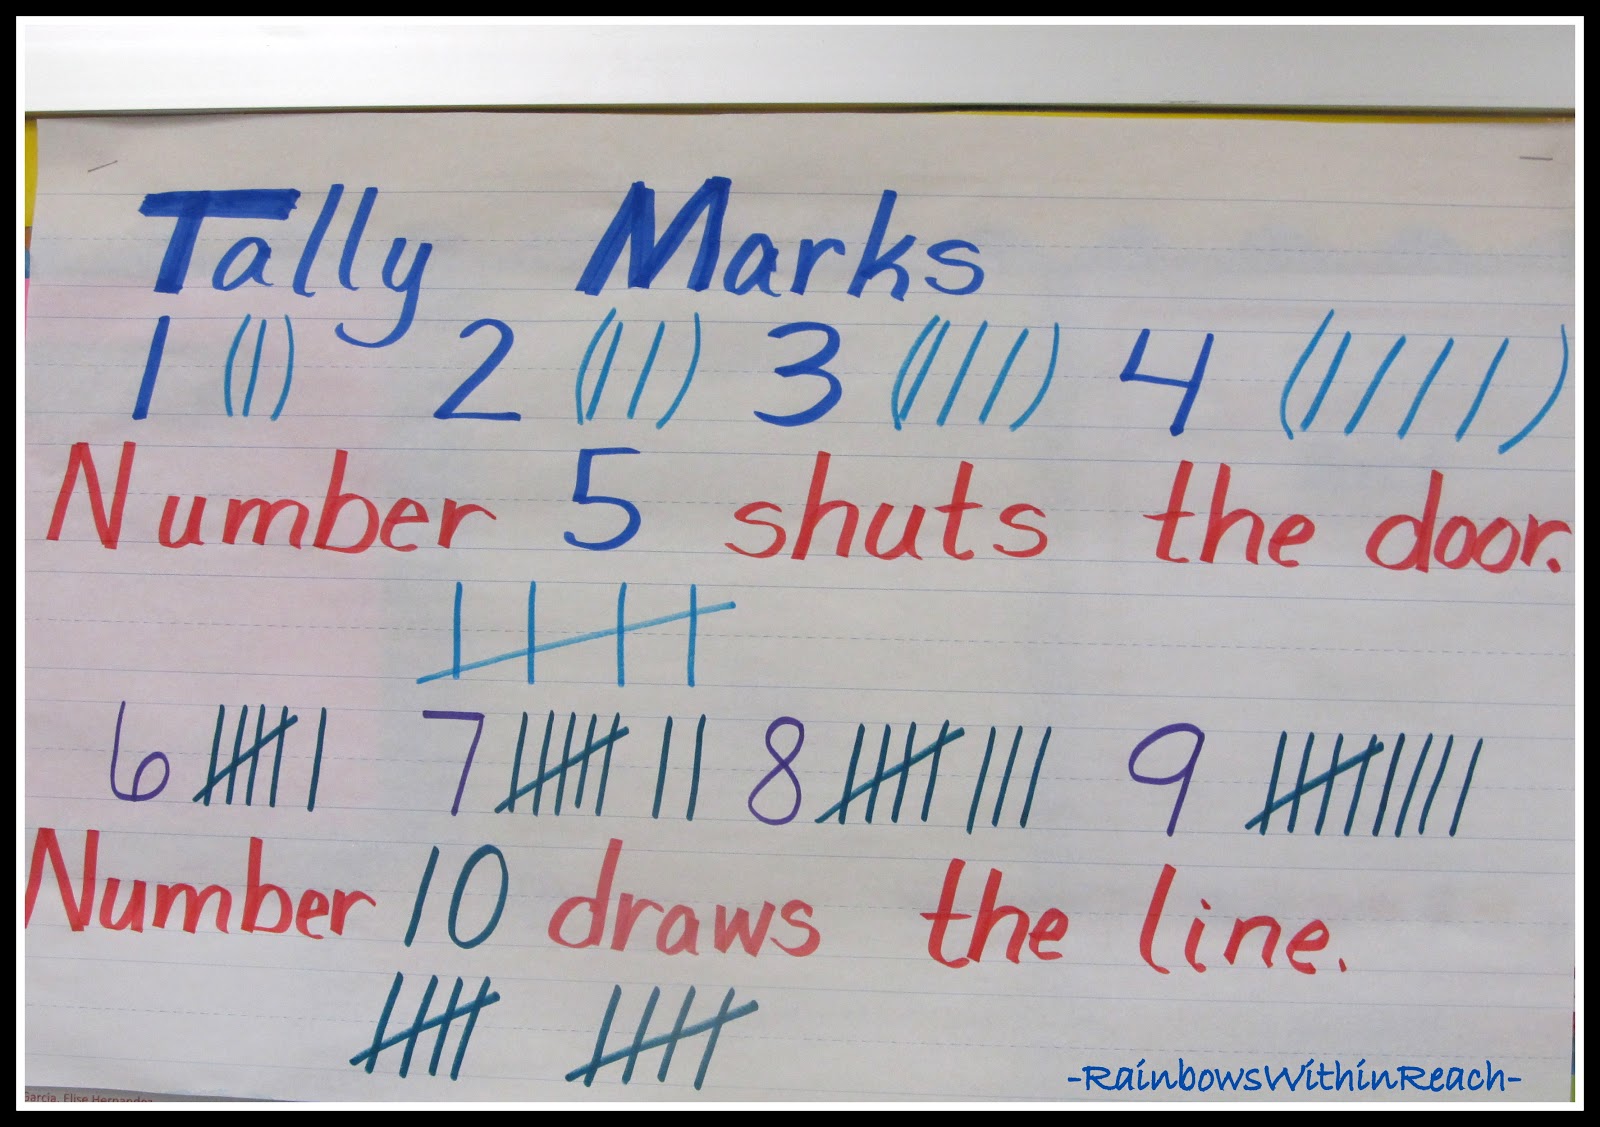 Tally Marks
1 (|) 2 (||) 3 (|||) 4 (||||)
Number 5 shuts the door.
6 7 8 9
Number 10 draws the line.
-RainbowsWithinReach-
Garcia, Elise Hernandez